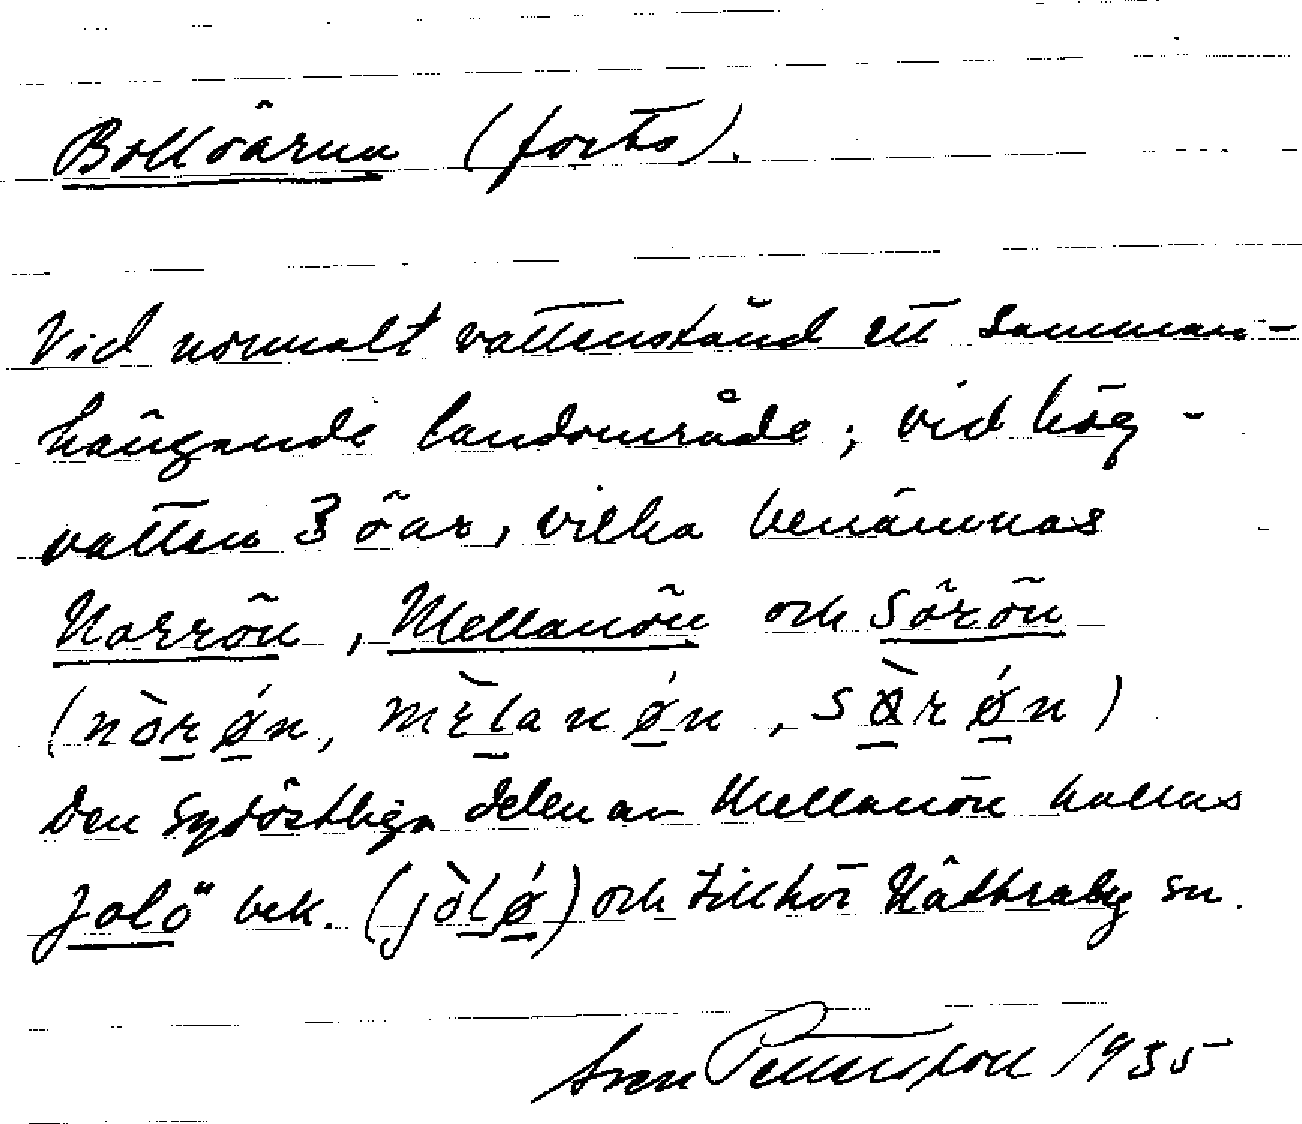 Bollöarna (forts).
Vid normalt vattenstånd ett samman-
hängande landområde; vid hög-
vatten 3 öar, vilka benämnas
Norrön, Mellanön och Sörön
(nòrǿn, mèlanǿn, sø̀rǿn)
Den sydöstliga delen av Mellanön kallas
Jolö bek. (jòlǿ) och tillhör Nättraby sn.
Sven Pettersson 1935